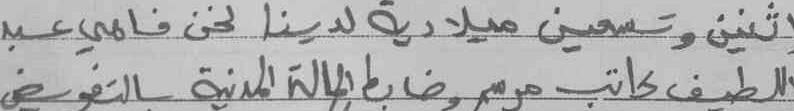 اثنين وتسعين ميلادية لدينا نحن فاهمي عبد
اللطيف كاتب مرسم وضابط الحالة المدنية بالتفويض